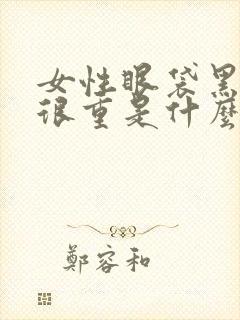 女性眼袋黑
很重是什麼
鄭容和